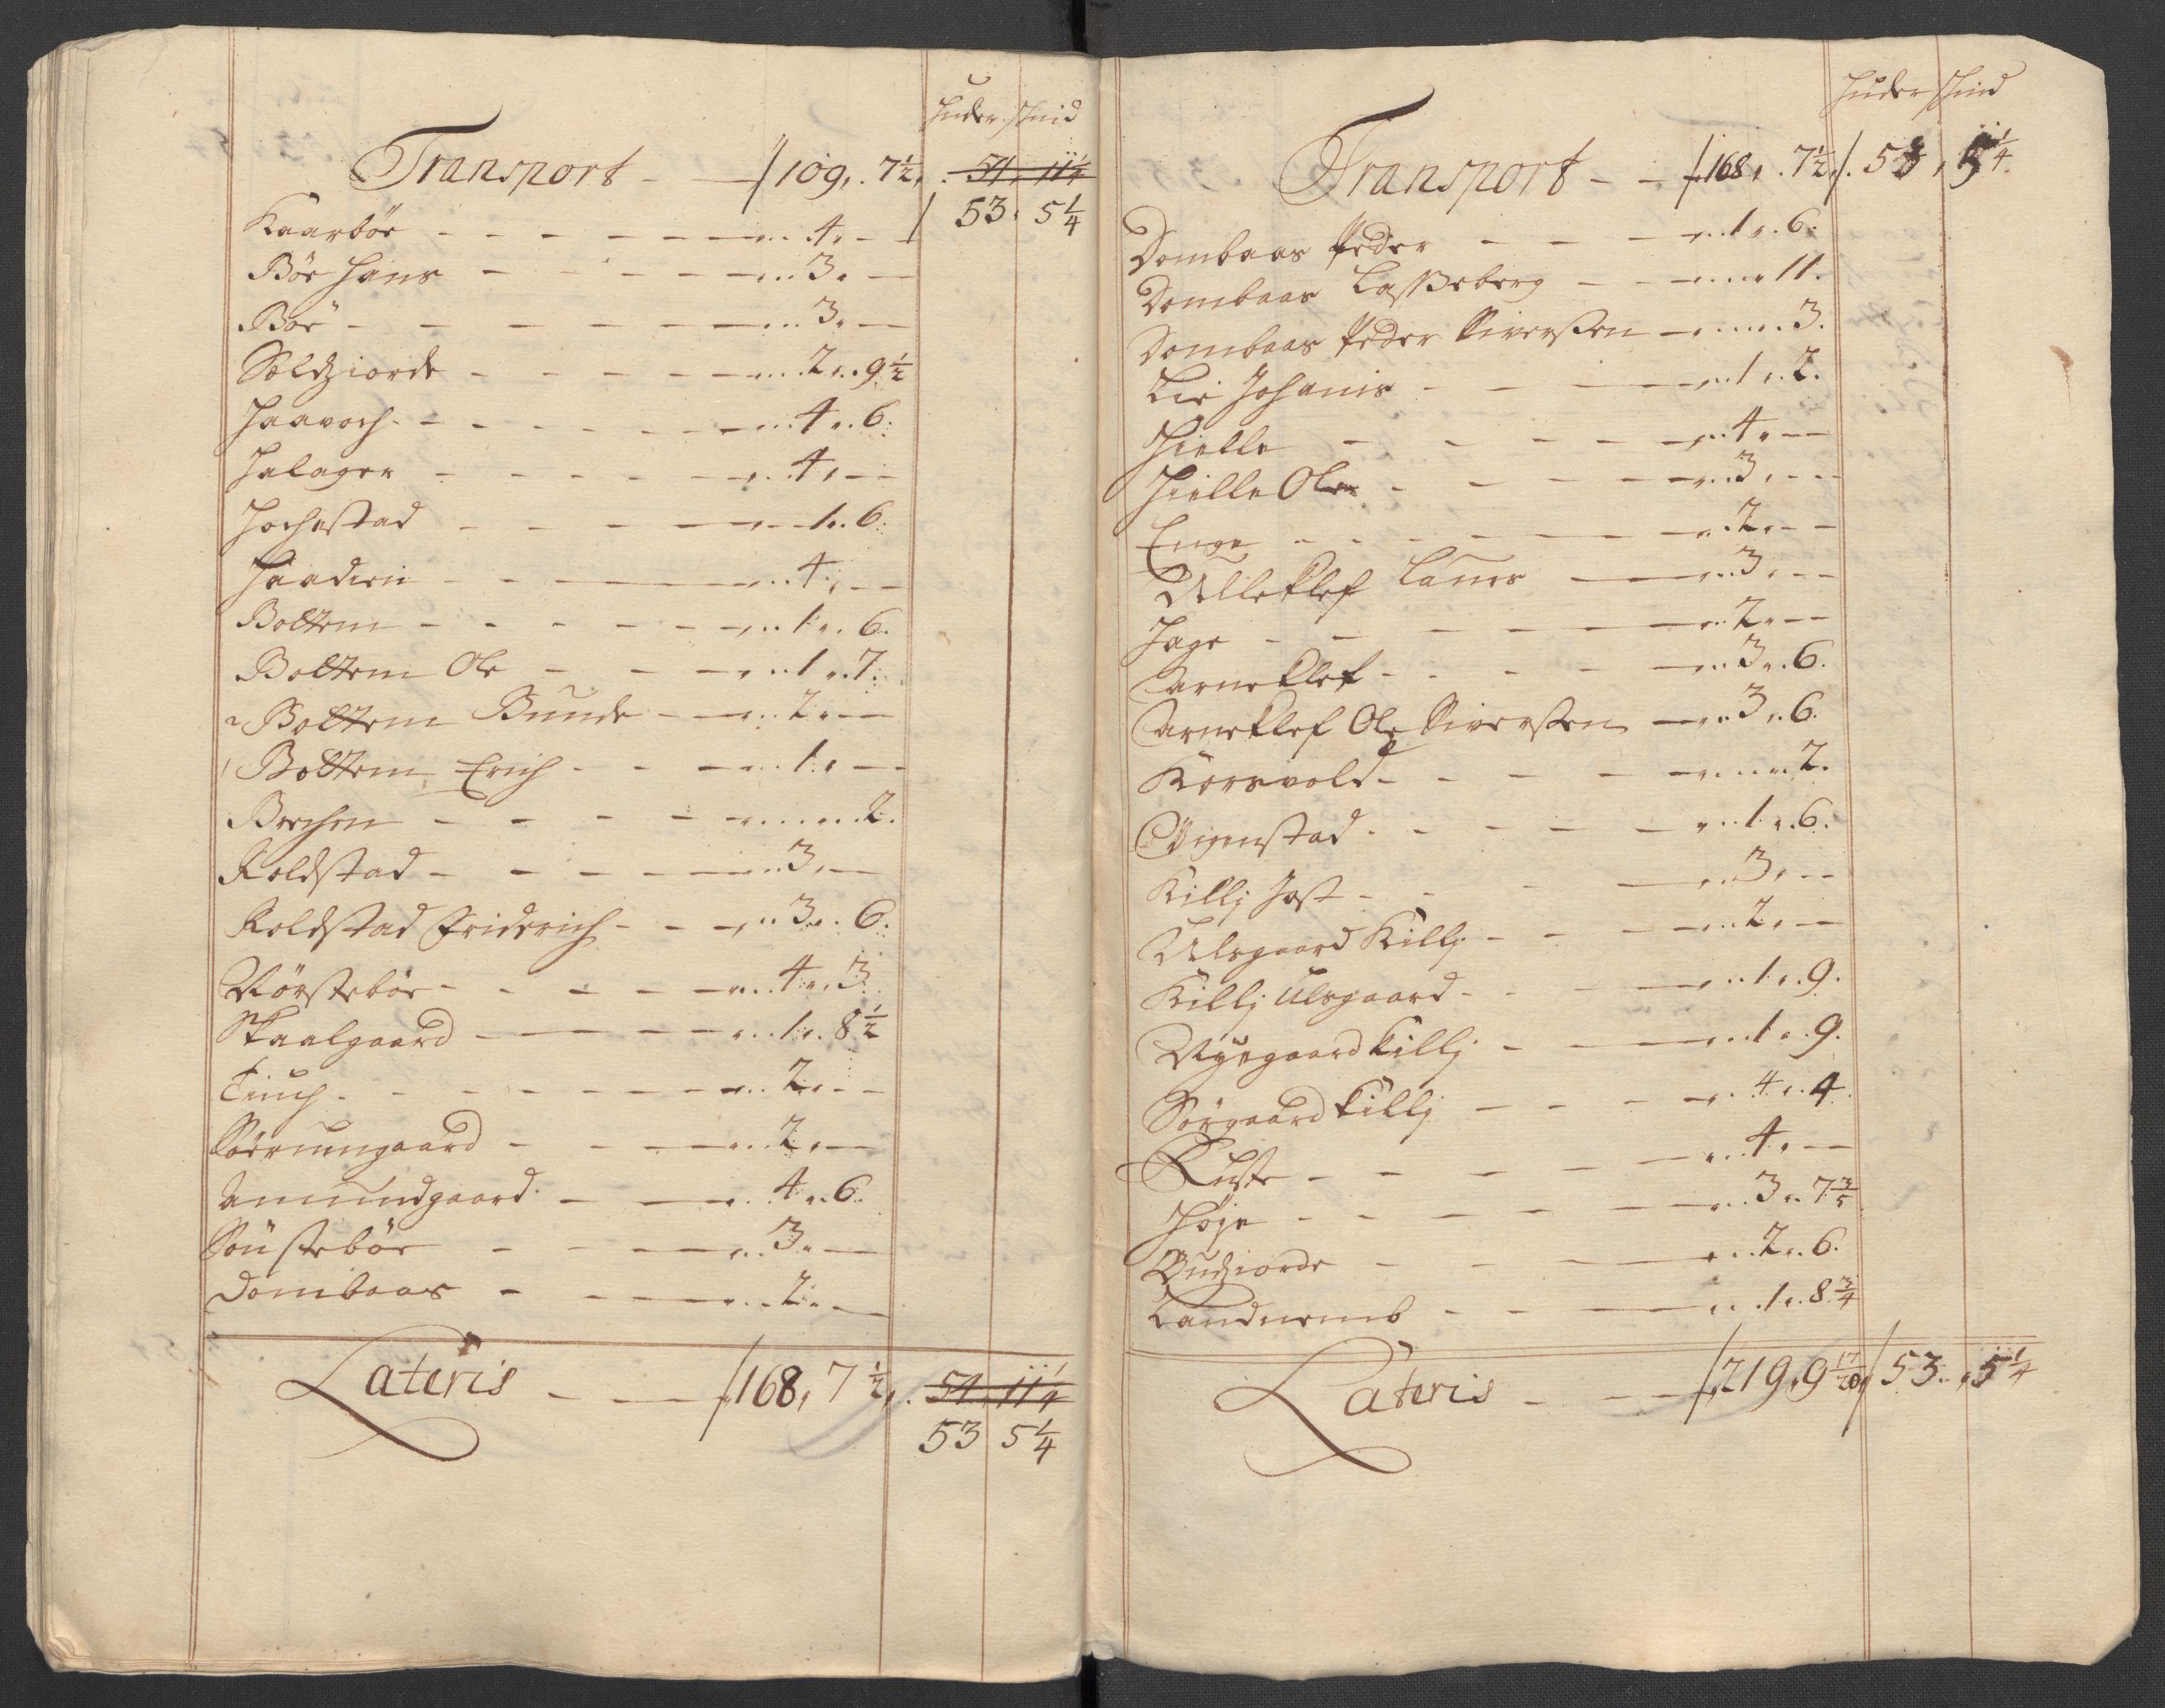 Huder Skind
Transport - - 109. 7½. 51. 11¼
53. 5¼
Kaarböe - - - 4. -
Böe Hans - - - 3. -
Böe - - - 3. -
Sœldgiorde - - - 2. 9½
Haavoch - - - 4. 6.
Jalager - - - 4. - -
Hochestad - - - 1. 6.
Haadien - - - 4. - -
Boltem - - - 1. 6.
Boltem Ole - - - 1. 7.
2 Boltem Bunde - - 2. -
1 Boltem Erich - - - 1. - -
Brechen - - - 2.
Roldstad - - - 3. -
Roldstad Friderich - - - 3. 6.
Rörsteböe - - - 4. 3.
Skaalgaard - - - 1. 8½
Tiuch - - - 2. - -
Sörrumgaard - - - 2. -
Amundgaard - - - 4. 6.
Söusteböe - - - 3. -
Dombaas - - - 2. -
Lateris - - 168. 7½. 51. 11¼
53 5¼
Huder Skind
Transport - - 168. 7½. 53. 5¼.
Dombaas Peder - - - 1. 6.
Dombaas Lasseberg - - 11.
Dombaas Peder Siverssen - 3.
Lie Johanis - - - 1. 2.
Hielle - - - 4. - -
Hielle Ole - - - 3. - -
Enge - - - 2. - -
Ulleklef Laurs - - 3. - -
Hage - - - 2. - -
Arneklef - - - 3. 6.
Arneklef Ole Siverssen - 3. 6.
Korsvold - - - 2.
Öigenstad - - - 1. 6.
Killj Jost - - - 3. - -
Ulsgaard Killj - - - 2. -
Killj Ulsgaard - - - 1. 9.
Nygaard Killj - - - 1. 9.
Sörgaard Killj - - - 4. 4.
Luste - - - 4. - -
Höje - - - 3. 7 3/5
Budgiorde - - - 2. 6.
Landnemb - - - 1. 8¾
Lateris - - 219. 9 17/20. 53. 5¼